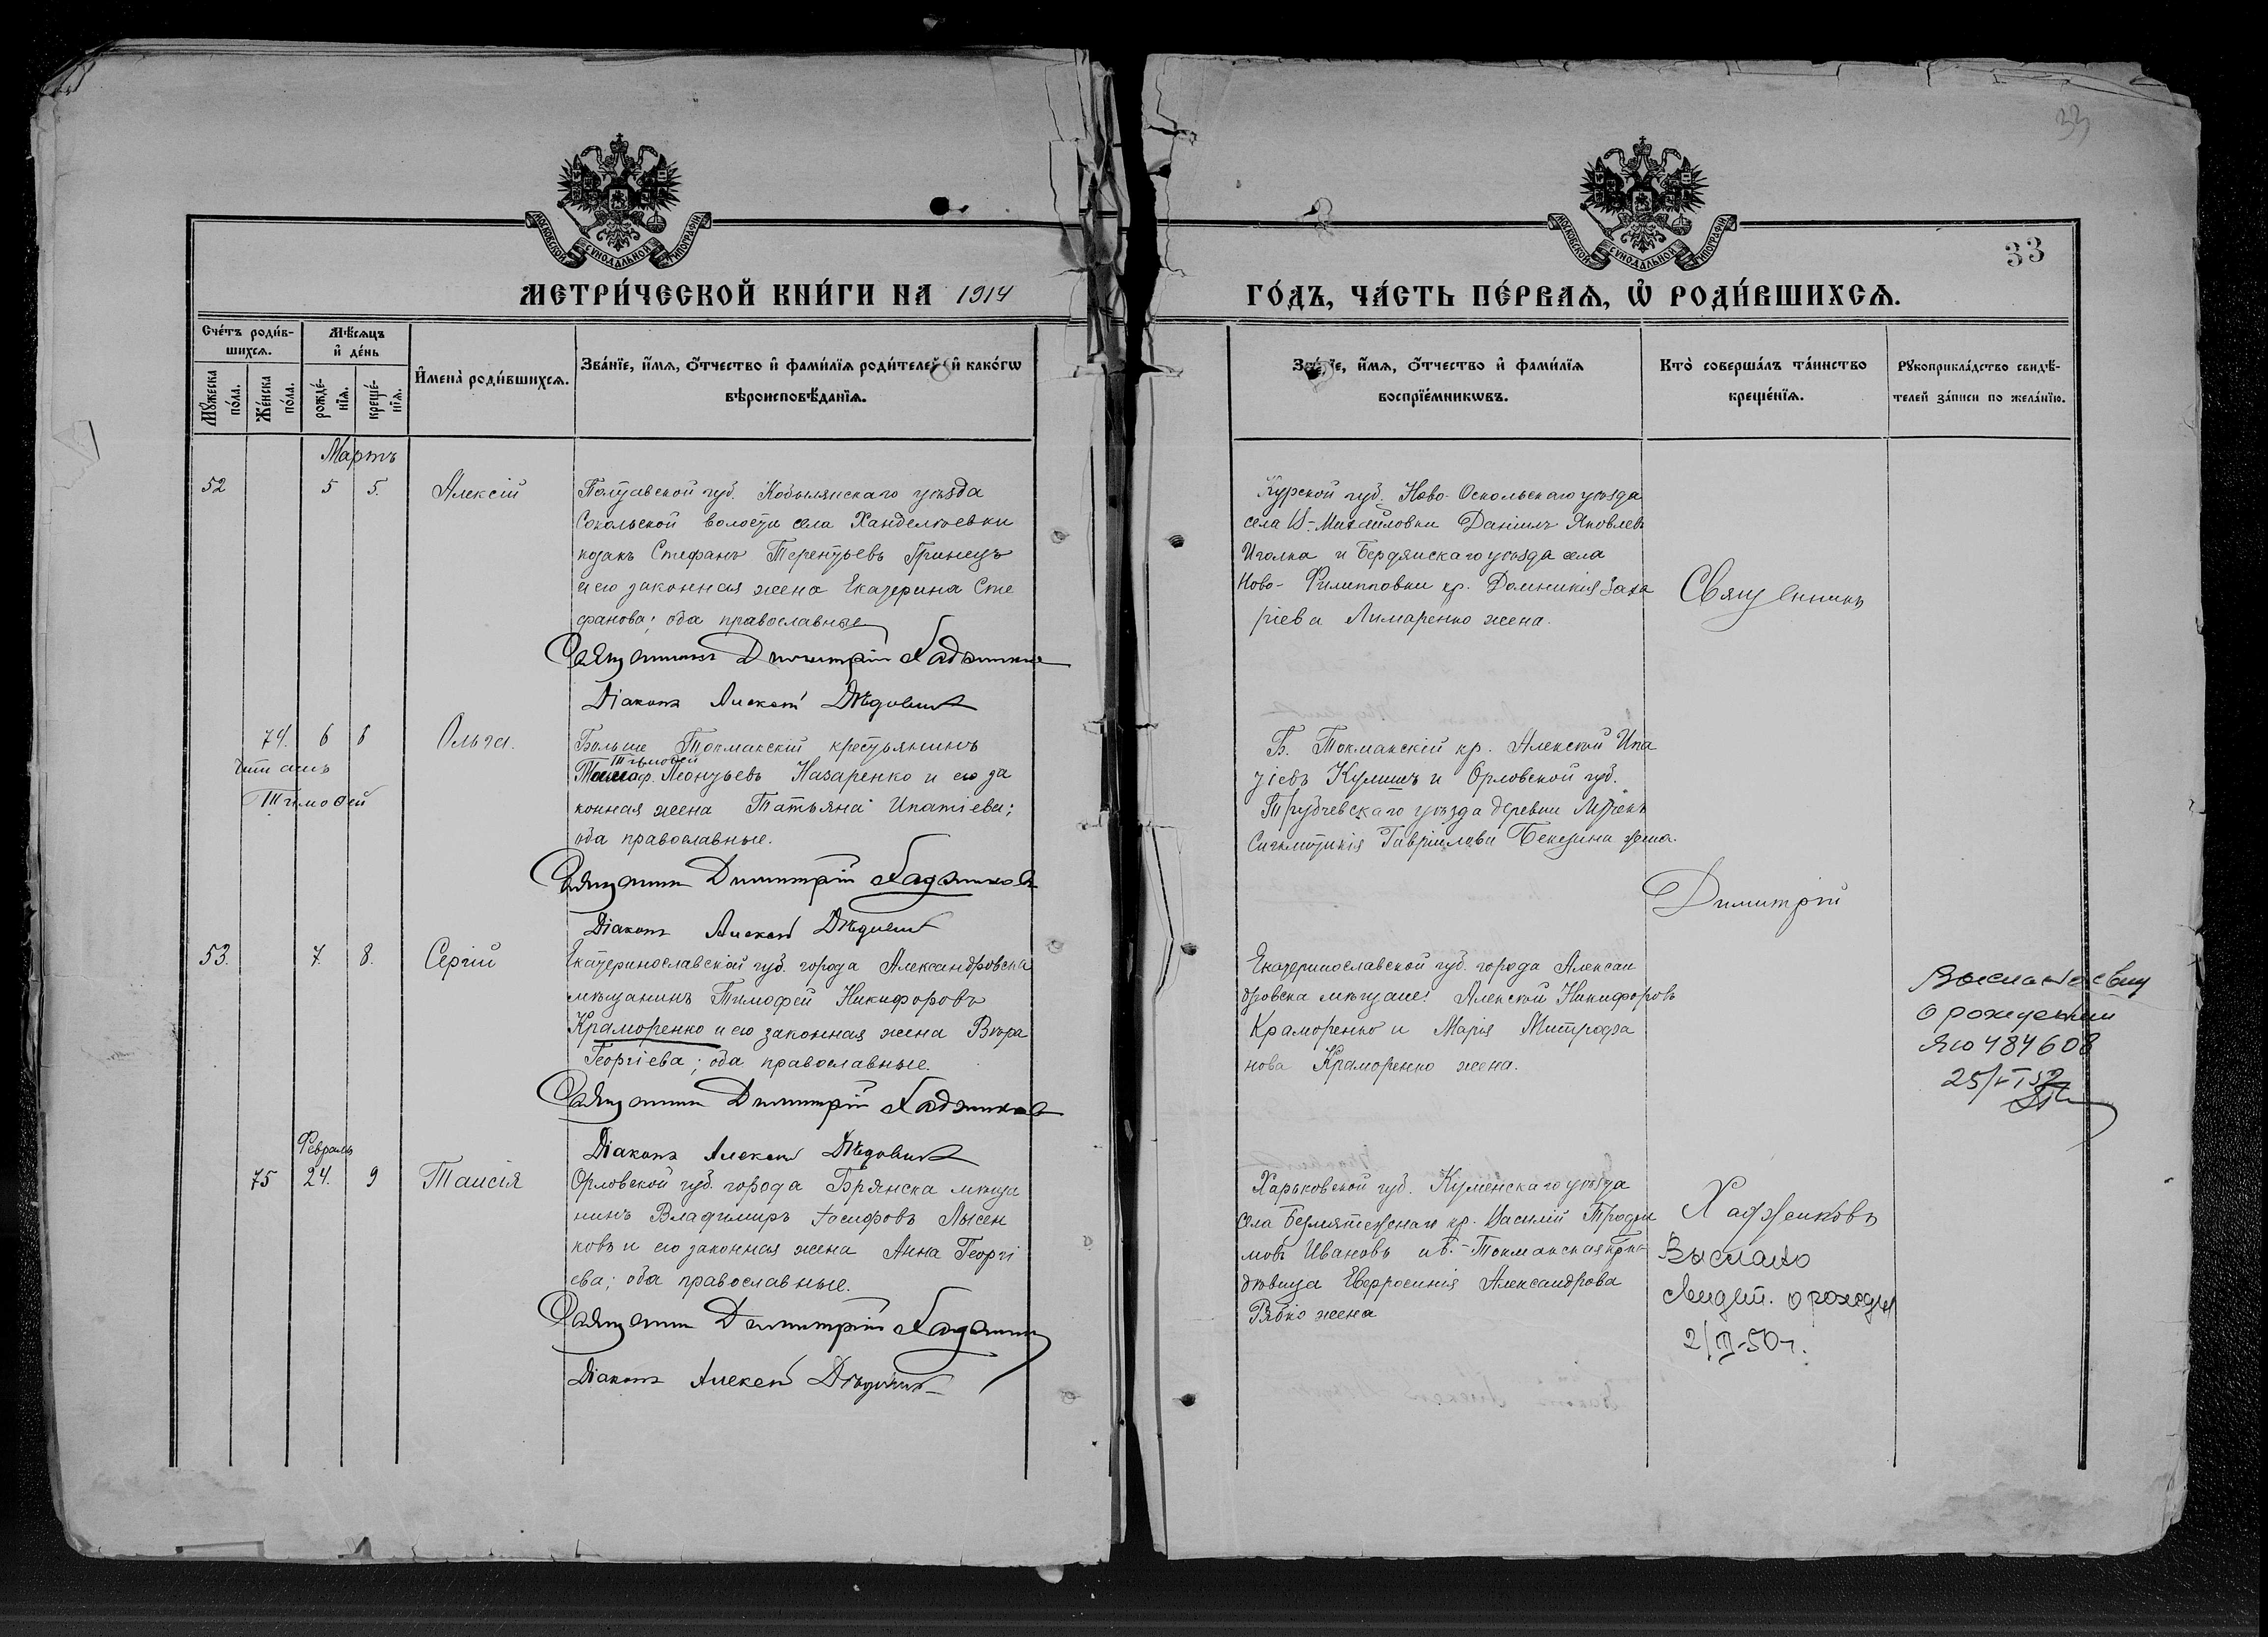 33
33
МОСКОВСКОЙ СѴНОДАЛЬНОЙ ТИПОГРАФІИ
МОСКОВСКОЙ СѴНОДАЛЬНОЙ ТИПОГРАФІИ
МЕТРИ́ЧЕСКОЙ КНИ́ГИ НА 1914
ГО́ДЪ, ЧА́СТЬ ПЕ́РВАѦ, Ѡ РОДИ́ВШИХСѦ.
Сче́тъ роди́в-
шихсѧ.
Мꙋ́жеска по́ла.
Же́нска по́ла.
Мѣ́сѧцъ
и҆ де́нь
рожде́-нїѧ.
креще́-нїѧ.
И҆мена̀ роди́вшихсѧ.
Зва́нїе, и҆́мѧ, ѻ҆́тчество и҆ фами́лїѧ роди́телей и҆ како́гѡ
вѣроисповѣ́данїѧ.
Зва́нїе, и҆́мѧ, ѻ҆́тчество и҆ фами́лїѧ
воспрїе́мникѡвъ.
Кто̀ соверша́лъ та́инство
креще́нїѧ.
Рꙋкоприкла́дство свидѣ́-
телей за́писи по жела́нїю.
Мартъ
52
5
5.
Алексій
Полтавской губ. Кобылянскаго уѣзда
Сокольской волости села Ханделѣевки
козакъ Стефанъ Терентьевъ Гринецъ
и его законная жена Екатерина Сте
фанова; оба православные
Священникъ Димитрій Хаджиковъ
Діаконъ Алексѣй Дѣдовичъ
Курской губ. Ново-Оскольскаго уѣзда
села Михайловки Даніилъ Яковлевъ
Иголка и Бердянскаго уѣзда села
Ново-Филипповки кр. Домникія Заха
ріева Лимаренко жена.
Священникъ
74.
6
6
Ольга.
читать
Тимофей
Больше Токмакскій крестьянинъ
Тимофей
Леонтьевъ Назаренко и его за
конная жена Татьяна Ипатіева;
оба православные.
Священникъ Димитрій Хаджиковъ
Діаконъ Алексѣй Дѣдовичъ
Б. Токмакскій кр. Алексѣй Ипа
тіевъ Кулишъ и Орловской губ.
Трубчевскаго уѣзда деревни
Гавріилова жена.
Димитрій
53.
7.
8.
Сергій
Екатеринославской губ. города Александровска
мѣщанинъ Тимофей Никифоровъ
Краморенко и его законная жена Вѣра
Георгіева; оба православные.
Священникъ Димитрій Хаджиковъ
Діаконъ Алексѣй Дѣдовичъ
Екатеринославской губ. города Алексан
дровска мѣщане: Алексѣй Никифоровъ
Краморенко и Марія Митрофа
нова Краморенко жена.
Выслано свид
о рождении
ЯЮ 484608
Февраль
75
24.
9
Таисія
Орловской губ. города Брянска мѣща
нинъ Владимиръ Іосифовъ Лысен
ковъ и его законная жена Анна Георгі
ева; оба православные.
Священникъ Димитрій Хаджиковъ
Діаконъ Алексѣй Дѣдовичъ
Харьковской губ. Купянскаго уѣзда
села кр. Василій Трофи
мовъ Ивановъ и Б.-Токмакская
дѣвица Евфросинія Александрова
Рябко жена
Хаджиковъ
Выслано
свидет. о рожден
2/III-50г.